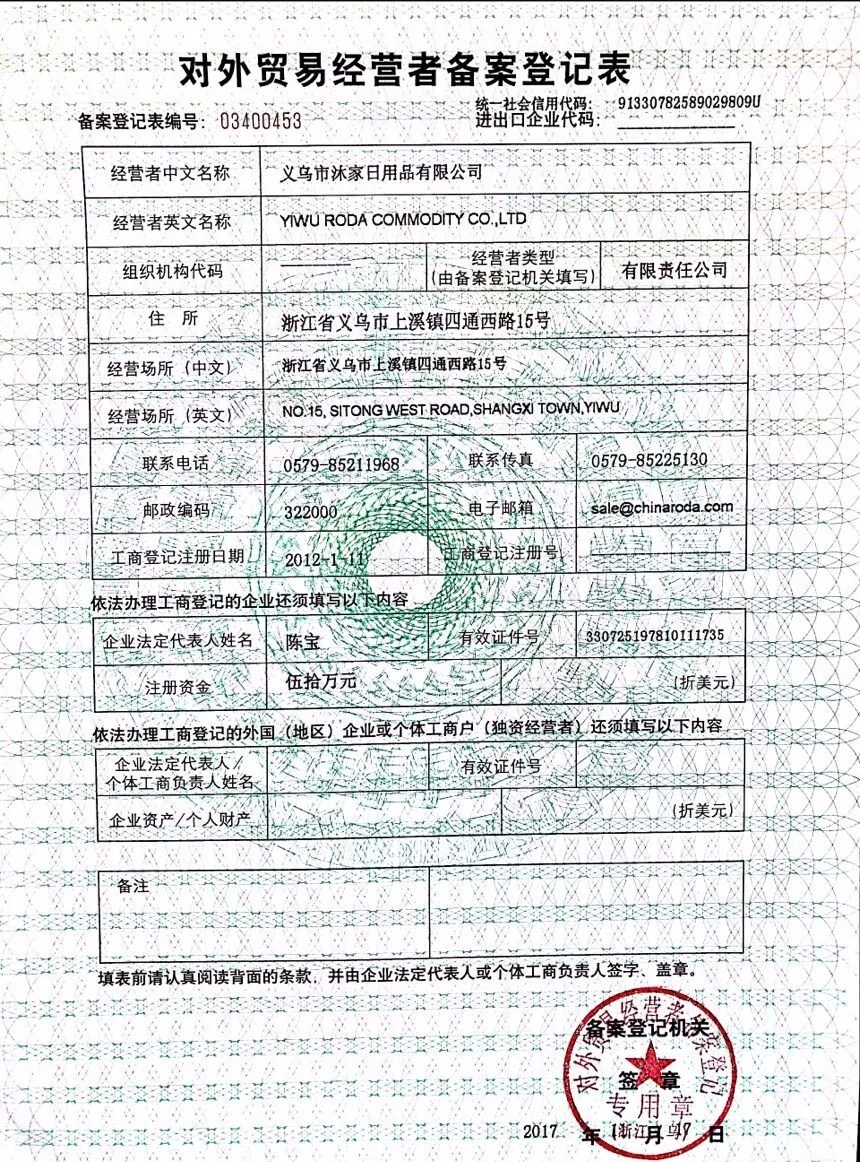 对外贸易经营者备案登记表
统一社会信用代码: 91330782589029809U
备案登记表编号: 03400453
进出口企业代码:
经营者中文名称 义乌市沐家日用品有限公司
经营者英文名称 YIWU RODA COMMODITY CO.,LTD
组织机构代码 经营者类型 (由备案登记机关填写) 有限责任公司
住 所 浙江省义乌市上溪镇四通西路15号
经营场所（中文） 浙江省义乌市上溪镇四通西路15号
经营场所（英文） NO.15, SITONG WEST ROAD,SHANGXI TOWN,YIWU
联系电话 0579-85211968 联系传真 0579-85225130
邮政编码 322000 电子邮箱 sale@chinaroda.com
工商登记注册日期 2012-1-11 工商登记注册号
依法办理工商登记的企业还须填写以下内容
企业法定代表人姓名 陈宝 有效证件号 330725197810111735
注册资金 伍拾万元 (折美元)
依法办理工商登记的外国（地区）企业或个体工商户（独资经营者）还须填写以下内容
企业法定代表人/
个体工商负责人姓名 有效证件号
企业资产/个人财产 (折美元)
备注
填表前请认真阅读背面的条款，并由企业法定代表人或个体工商负责人签字、盖章。
对外贸易经营者备案登记
备案登记机关
签 章
专用章
(浙江义乌)
2017 年 月 17 日